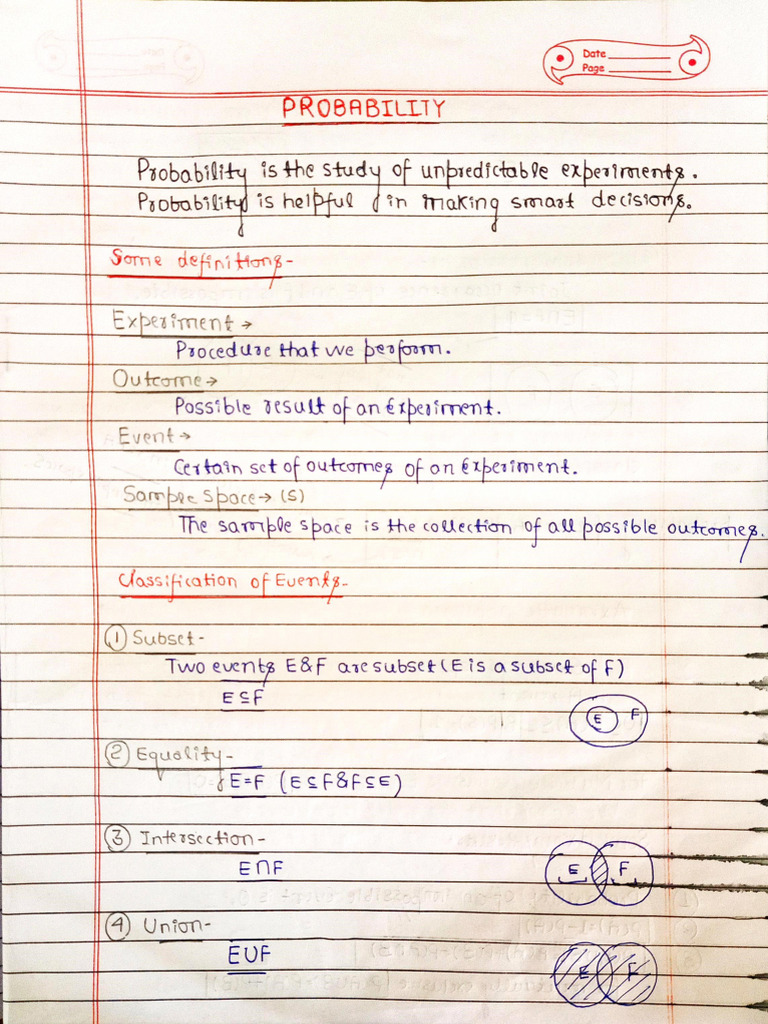 Date
Page
PROBABILITY
Probability is the study of unpredictable experiments.
Probability is helpful in making smart decisions.
Some definitions-
Experiment→
Procedure that we perform.
Outcome→
Possible result of an Experiment.
Event→
Certain set of outcomes of an Experiment.
Sample space→ (S)
The sample space is the collection of all possible outcomes.
Classification of Events-
① Subset-
Two events E&F are subset (E is a subset of F)
E⊆F
E F
② Equality-
E=F (E⊆F&F⊆E)
③ Intersection-
E∩F
E F
④ Union-
E∪F
E F